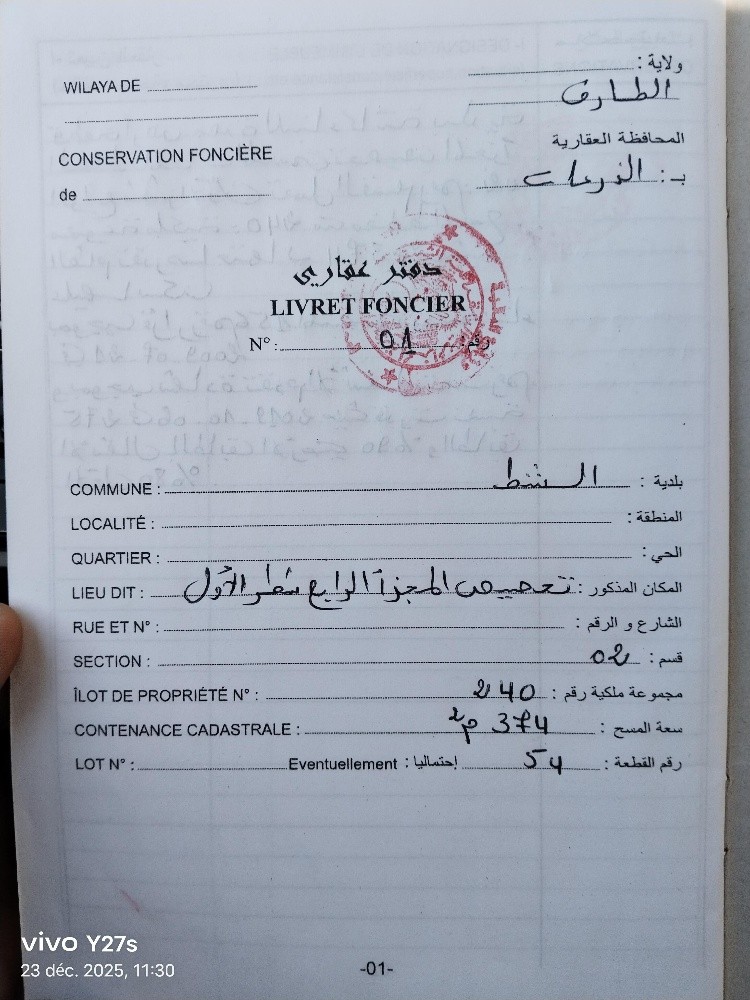 WILAYA DE ولاية :
الطارف
CONSERVATION FONCIÈRE المحافظة العقارية
de بـ : الذرعان
دفتر عقاري
LIVRET FONCIER
N° : 01 رقم :
COMMUNE : الشط بلدية :
LOCALITÉ : المنطقة :
QUARTIER : الحي :
LIEU DIT : تحصيص المجزأ الرابع شطر الأول المكان المذكور :
RUE ET N° : الشارع و الرقم :
SECTION : 02 قسم :
ÎLOT DE PROPRIÉTÉ N° : 240 مجموعة ملكية رقم :
CONTENANCE CADASTRALE : 374 م2 سعة المسح :
LOT N° : Eventuellement : إحتماليا : 54 رقم القطعة :
-01-
vivo Y27s
23 déc. 2025, 11:30